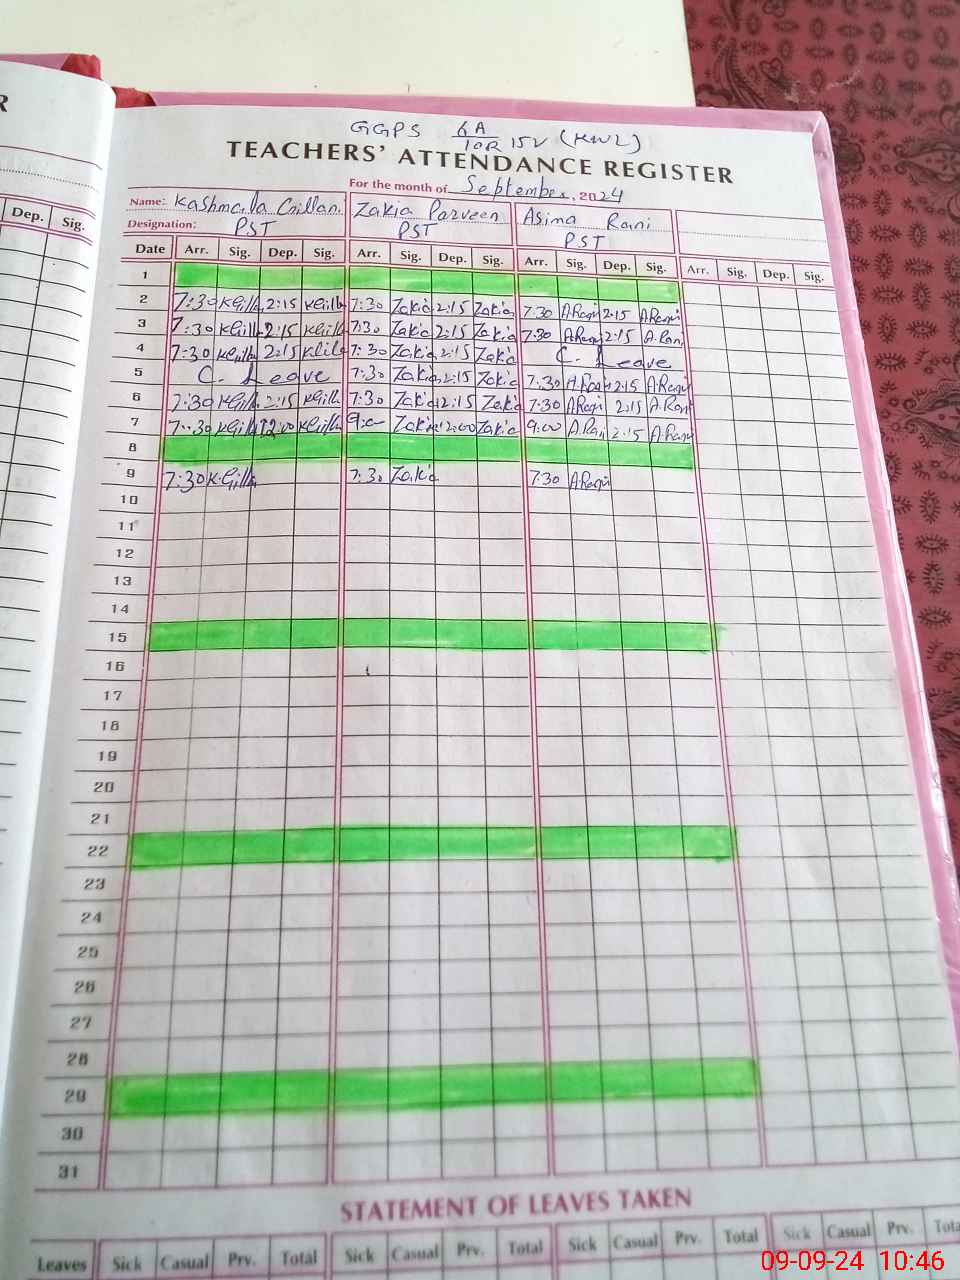 R
GGPS 6A/10R 15V (KWL)
TEACHERS' ATTENDANCE REGISTER
For the month of September, 2024
Name: Kashmala Zakia Parveen Asima Rani
Designation: PST PST PST
Dep. Sig.
Date Arr. Sig. Dep. Sig. Arr. Sig. Dep. Sig. Arr. Sig. Dep. Sig. Arr. Sig. Dep. Sig.
1
2 7:30 KGill 2:15 KGill 7:30 Zakia 2:15 Zakia 7:30 ARani 2:15 ARani
3 7:30 KGill 2:15 KGill 7:30 Zakia 2:15 Zakia 7:30 ARani 2:15 A.Rani
4 7:30 KGill 2:15 KGill 7:30 Zakia 2:15 Zakia C. Leave
5 C. Leave 7:30 Zakia 2:15 Zakia 7:30 A.Rani 2:15 A.Rani
6 7:30 KGill 2:15 KGill 7:30 Zakia 2:15 Zakia 7:30 ARani 2:15 A.Rani
7 7:30 KGill 12:00 KGill 9:00 Zakia 12:00 Zakia 9:00 A.Rani 2:15 A.Rani
8
9 7:30 K.Gill 7:30 Zakia 7:30 ARani
10
11
12
13
14
15
16
17
18
19
20
21
22
23
24
25
26
27
28
29
30
31
STATEMENT OF LEAVES TAKEN
Leaves Sick Casual Prv. Total Sick Casual Prv. Total Sick Casual Prv. Total Sick Casual Prv.
09-09-24 10:46